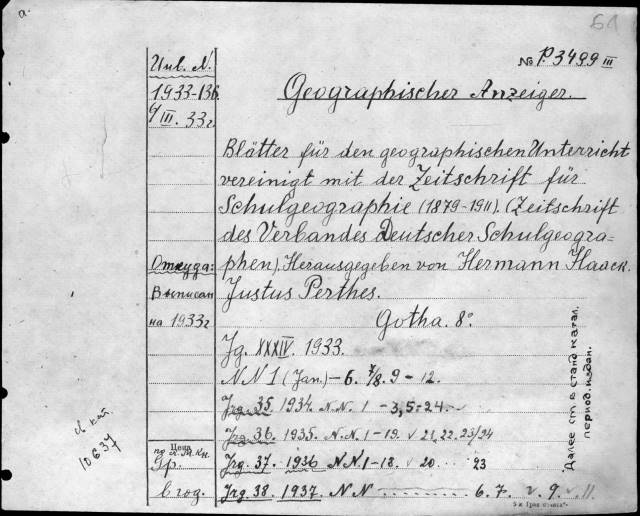 a.
61
№ P.3499 III
Инв. N.
1933-136
9/III. 33г.
Geographischer Anzeiger.
Blätter für den geographischen Unterricht
vereinigt mit der Zeitschrift für
Schulgeographie (1879-1911). (Zeitschrift
des Verbandes Deutscher Schulgeogra=
phen). Herausgegeben von Hermann Haack.
Justus Perthes.
Gotha. 8°
Откуда:
Выписан
на 1933г
Jg. XXXIV. 1933.
NN 1 (Jan.) - 6. 7/8. 9 - 12.
Jrg. 35. 1934. N.N. 1 - 3, 5=24.
Jrg. 36. 1935. N.N. 1-19. v 21, 22. 23/24
Jrg. 37. 1936 N.N. 1-18. v 20. 23
Jrg. 38. 1937. N N 6. 7. v. 9. v. 11.
Цена
Gp.
в год.
Далее см. в станд. катал.
период. издан.
кат.
10637